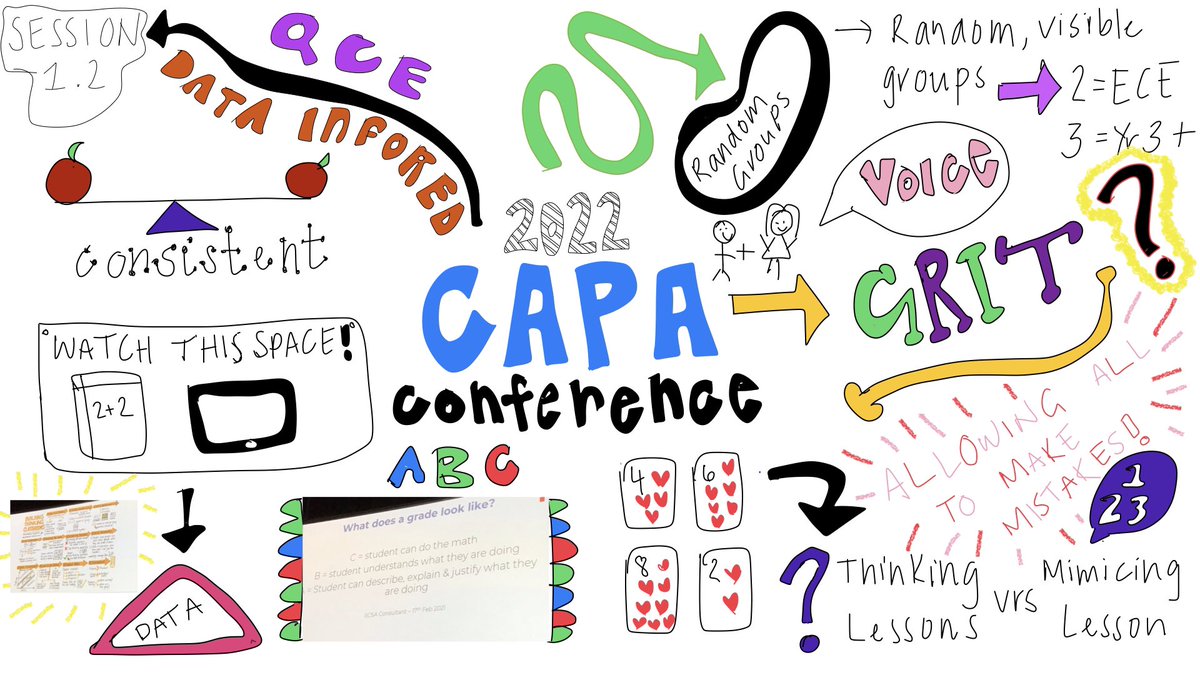 SESSION
1.2
QCE
DATA INFORED
consistent
WATCH THIS SPACE!
2+2
DATA
2022
CAPA
conference
ABC
What does a grade look like?
C = student can do the math
B = student understands what they are doing
= Student can describe, explain & justify what they
are doing
Consultant – 17th Feb 2021
Random
Groups
→ Random, visible
groups
2 = ECE
3 = Yr 3 +
Voice
+
GRIT
?
ALLOWING ALL
TO MAKE
MISTAKES!
4
6
8
2
?
1
23
Thinking
Lessons
vrs
Mimicing
Lesson